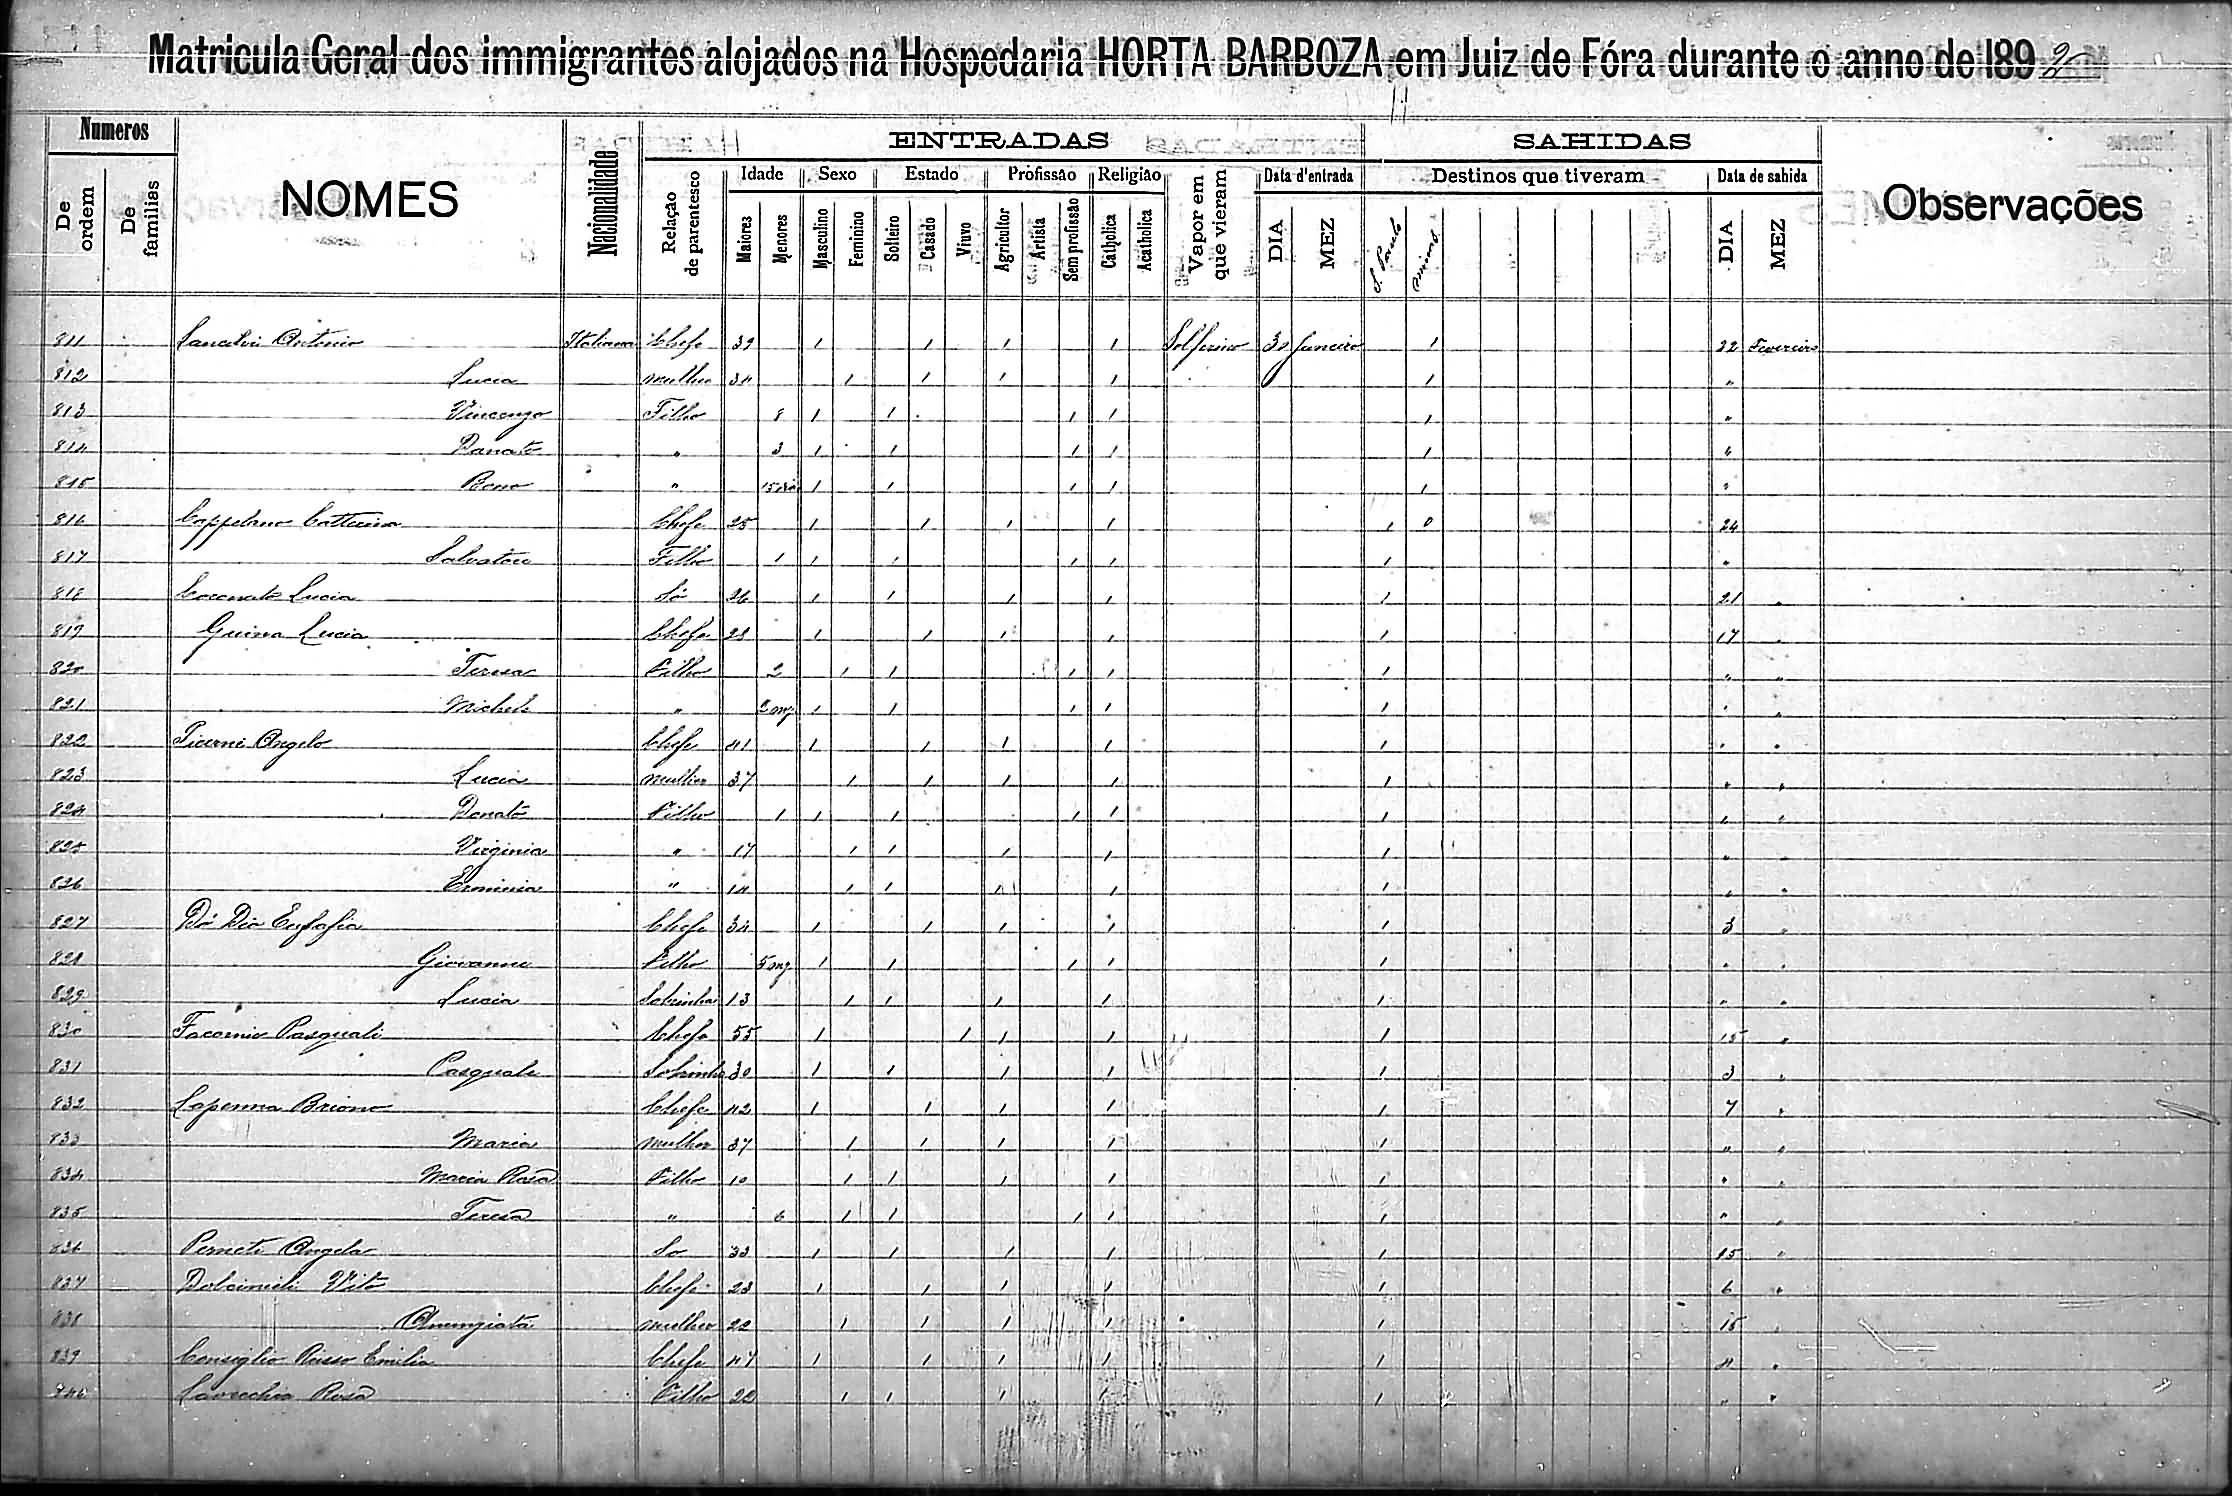 Matricula Geral dos immigrantes alojados na Hospedaria HORTA BARBOZA em Juiz de Fóra durante o anno de 1892
Numeros ENTRADAS SAHIDAS
De ordem De familias NOMES Nacionalidade Relação de parentesco Idade Sexo Estado Profissão Religião Vapor em que vieram Data d'entrada Destinos que tiveram Data de sahida Observações
Maiores Menores Masculino Feminino Solteiro Casado Viuvo Agricultor Artista Sem profissão Catholica Acatholica DIA MEZ S. Paulo Minas DIA MEZ
811 Antonio Italiana Chefe 39 1 1 1 1 Solferino 30 Janeiro 1 22 Fevereiro
812 Lucia mulher 34 1 1 1 1 1 "
813 Vincenzo Filho 8 1 1 1 1 1 "
814 Donato " 3 1 1 1 1 1 "
815 " 15 dias 1 1 1 1 1 "
816 Chefe 25 1 1 1 1 1 0 24
817 Salvatore Filho 1 1 1 1 1 1 "
818 Coronato Lucia Só 26 1 1 1 1 1 21 "
819 Lucia Chefe 28 1 1 1 1 1 17 "
820 Teresa Filho 2 1 1 1 1 1 " "
821 Michele " 2 mz 1 1 1 1 1 " "
822 Picerni Angelo Chefe 41 1 1 1 1 1 " "
823 Lucia mulher 37 1 1 1 1 1 " "
824 Donato Filho 1 1 1 1 1 1 " "
825 Virginia " 17 1 1 1 1 1 " "
826 Erminia " 14 1 1 1 1 1 " "
827 Chefe 34 1 1 1 1 1 3 "
828 Giovanni Filho 5 mz 1 1 1 1 1 " "
829 Lucia Sobrinha 13 1 1 1 1 1 " "
830 Pasquali Chefe 55 1 1 1 1 1 15 "
831 Pasquale Sobrinho 30 1 1 1 1 1 3 "
832 Lapenna Chefe 42 1 1 1 1 1 7 "
833 Maria mulher 37 1 1 1 1 1 " "
834 Maria Rosa Filho 10 1 1 1 1 1 " "
835 Teresa " 6 1 1 1 1 1 " "
836 Angela So 33 1 1 1 1 1 15 "
837 Vito Chefe 23 1 1 1 1 1 6 "
838 Anunziata mulher 22 1 1 1 1 1 15 "
839 Consiglio Russo Emilia Chefe 47 1 1 1 1 1 " "
840 Lavecchia Rosa Filho 22 1 1 1 1 1 " "